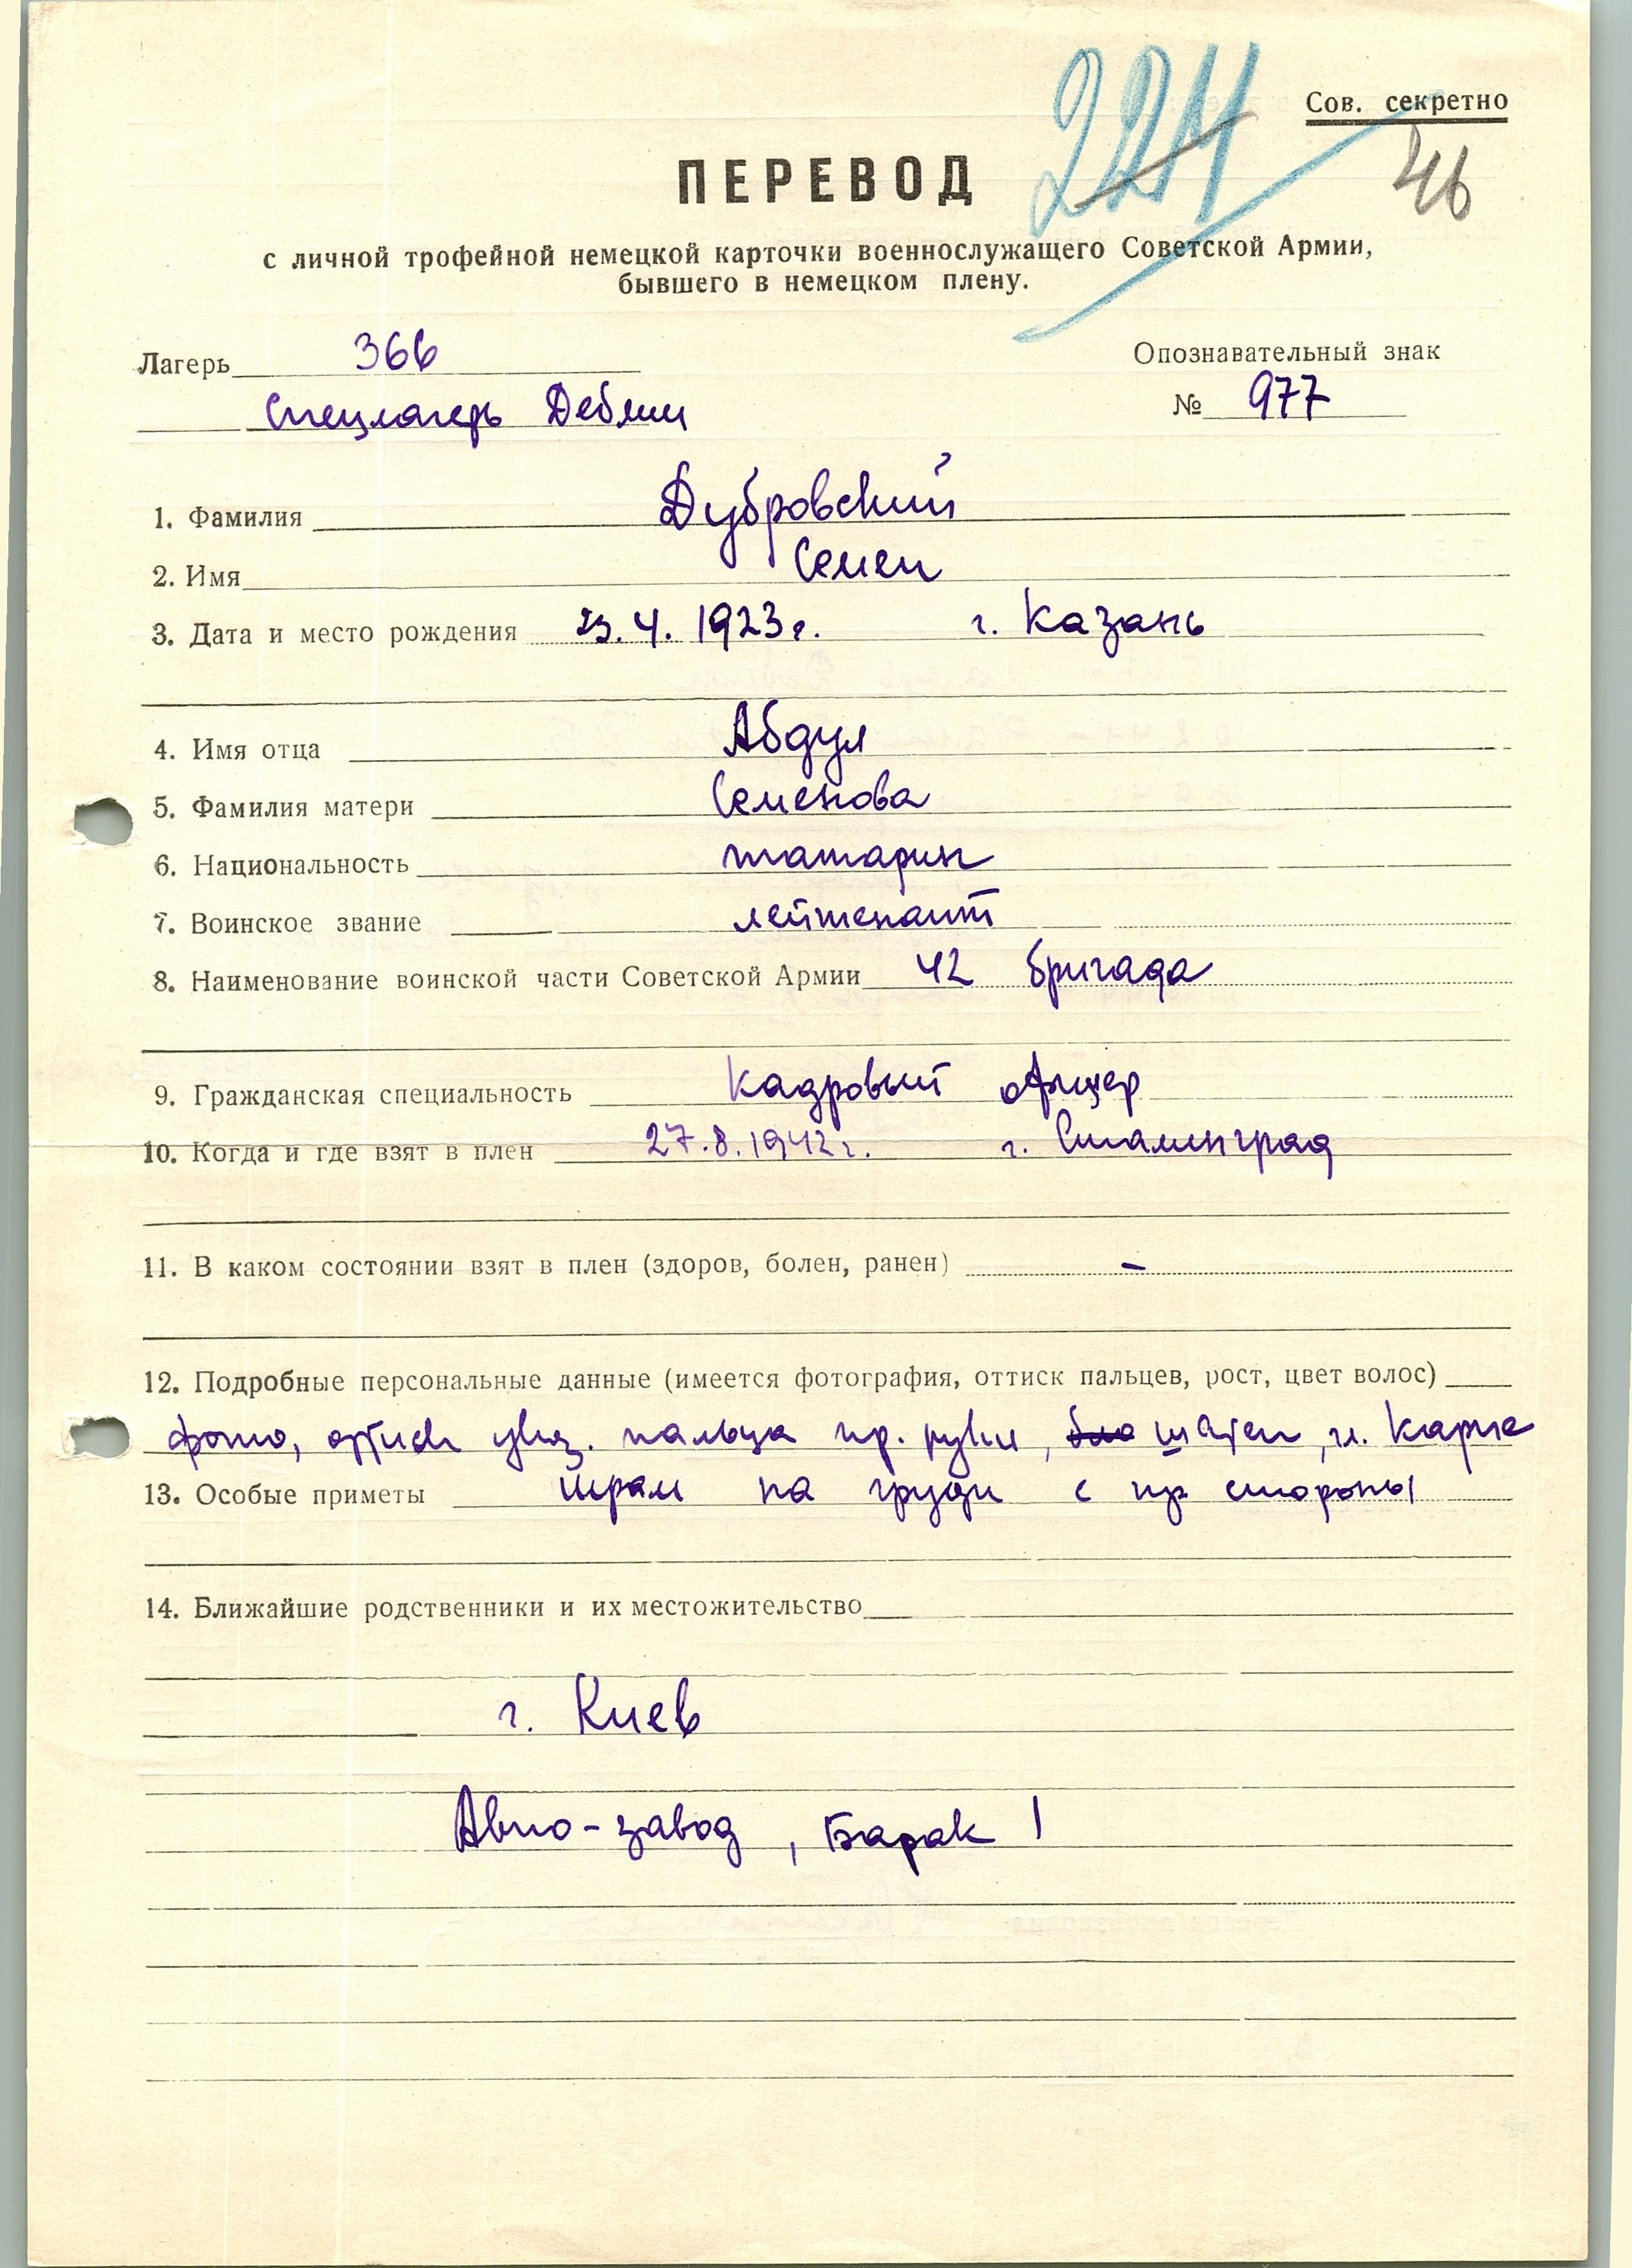 Сов. секретно
221
46
ПЕРЕВОД
с личной трофейной немецкой карточки военнослужащего Советской Армии,
бывшего в немецком плену.
Лагерь 366
Опознавательный знак
Спецлагерь Деблин
№ 977
1. Фамилия Дубровский
2. Имя Семен
3. Дата и место рождения 23.4. 1923г. г. Казань
4. Имя отца Абдул
5. Фамилия матери Семенова
6. Национальность татарин
7. Воинское звание лейтенант
8. Наименование воинской части Советской Армии 42 бригада
9. Гражданская специальность Кадровый офицер
10. Когда и где взят в плен 27.8.1942г. г. Сталинград
11. В каком состоянии взят в плен (здоров, болен, ранен) –
12. Подробные персональные данные (имеется фотография, оттиск пальцев, рост, цвет волос)
фото, оттиск указ. пальца пр. руки, шатен, н. карте
13. Особые приметы шрам на груди с пр стороны
14. Ближайшие родственники и их местожительство
г. Киев
Авто-завод, Барак 1